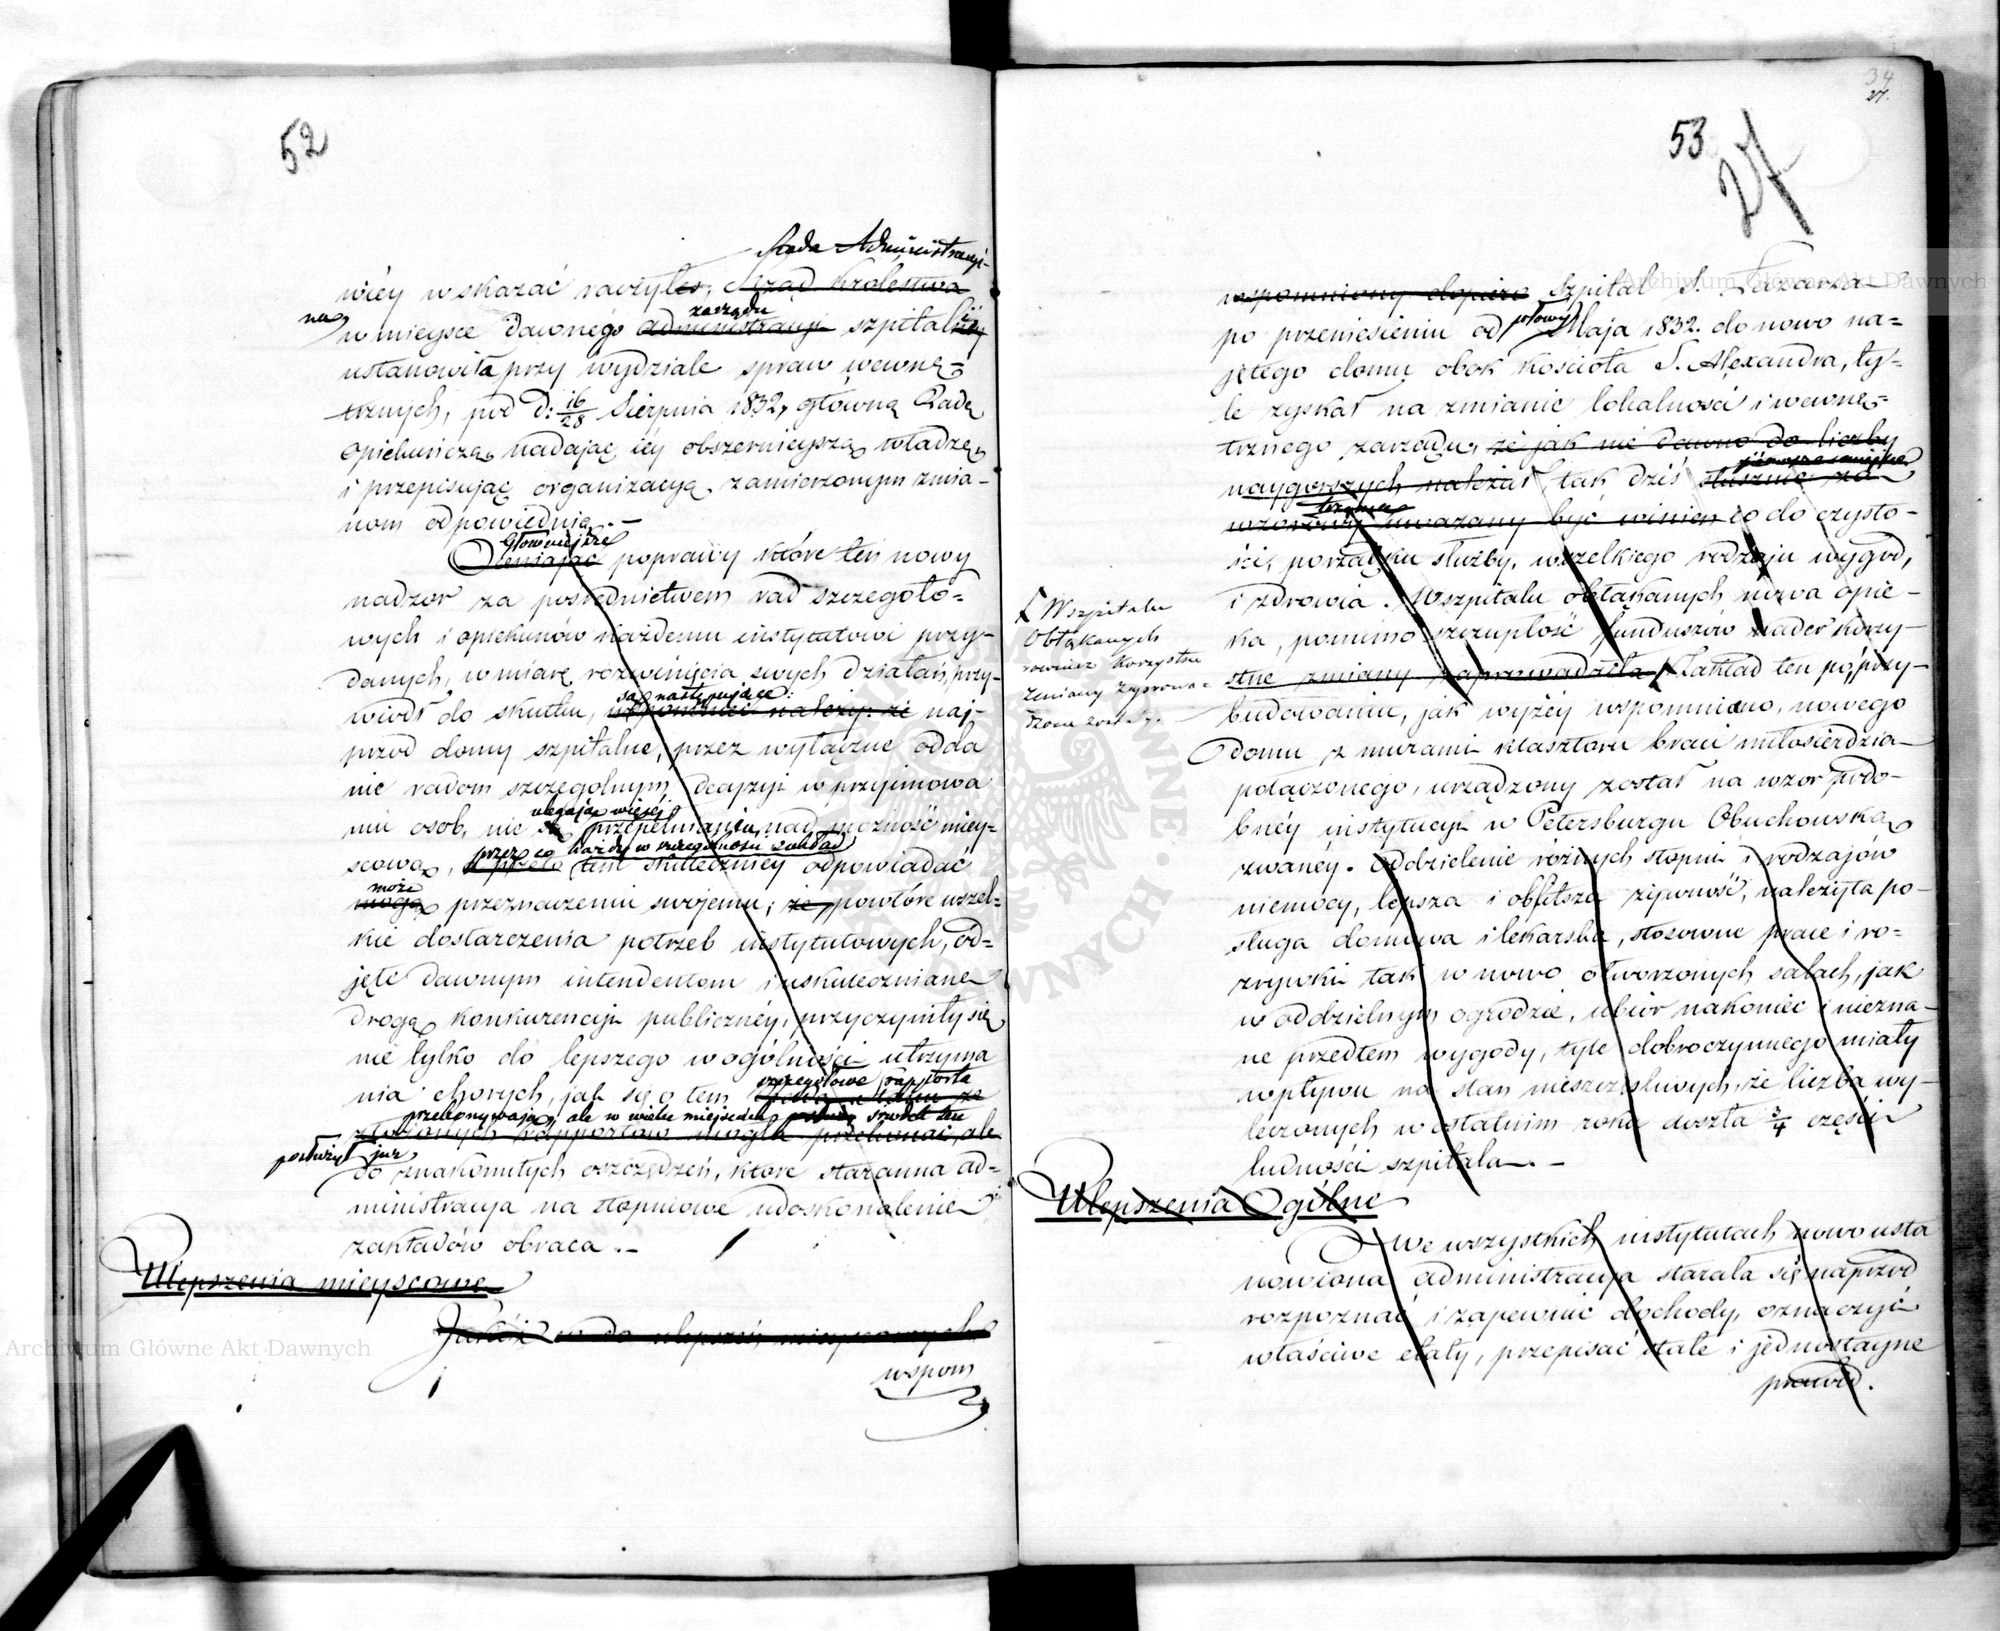 52
Rada Administracyj-
wiéy wskazać raczyłeś, Rząd Królestwa
na w miejsce dawnego administracyi zarządu szpitalnéy
ustanowiła przy wydziale spraw wewnę-
trznych, pod d: 16/28 Sierpnia 1832, główną Radę
Opiekuńczą, nadając iéy obszernieyszą władzę,
i przepisując organizacyą, zamierzonym zmia-
nom odpowiednią. —
Głównieysze
Oceniając poprawy które ten nowy
nadzór za pośrednictwem rad szczegóło-
wych i opiekunów każdemu instytutowi przy-
danych, w miarę rozwinięcia swych działań, przy-
są następujące:
wiódł do skutku, wspomnieć należy: że naj-
przód domy szpitalne, przez wyłączne odda
nie radom szczególnym decyzyi w przyjmowa
niu osob, nie
ulegając więcéj
przepełnianiu nad możność miey-
przez co każdy w szczególności zakład
scową, tém skuteczniey odpowiadać
może
mogą przeznaczeniu swojemu; że powtóre wszel-
kie dostarczenia potrzeb instytutowych, od-
jęte dawnym intendentom i uskuteczniane
drogą konkurencyi publicznéy, przyczyniły się
nie tylko do lepszego w ogólności utrzyma
nia chorych, jak się o tem
szczegółowe rapporta
przekonywają, ale w wielu miejscach
złożonych rapportów mogła przekonać, ale
posłużył już
do znakomitych oszczędzeń, które staranna ad-
ministracya na stopniowe udoskonalenie
zakładów obraca. —
Ulepszenia mieyscowe
Jakoż co do ulepszeń mieyscowych
wspom
34
27.
53
27
wspomniony dopiéro Szpital S. Łazarza
po przeniesieniu od połowy Maja 1832. do nowo na-
jętego domu obok kościoła S. Alexandra, ty-
le zyskał na zmianie lokalności i wewnę-
trznego zarządu, że jak nie dawno do liczby
pierwsze miejsce
naygorszych należał tak dziś słusznie za
trzyma
wzorowy uważany być winien co do czysto-
ści, porządku służby, wszelkiego rodzaju wygod,
i zdrowia. W szpitalu obłąkanych nowa opie-
ka, pomimo szczupłość funduszów nader korzy-
stne zmiany zaprowadziła. Zakład ten po przy-
budowaniu, jak wyżéy wspomniano, nowego
domu z murami klasztoru braci miłosierdzia
połączonego, urządzony został na wzor podo-
bnéy instytucyi w Petersburgu Obuchowską
zwanéy. Oddzielenie różnych stopni i rodzajów
niemocy, lepsza i obfitsza żywność, należyta po-
sługa domowa i lekarska, stosowne prace i ro-
zrywki tak w nowo otworzonych salach, jak
w oddzielnym ogrodzie, ubiór nakoniec i niezna-
ne przedtem wygody, tyle dobroczynnego miały
wpływu na stan nieszczęśliwych, że liczba wy-
leczonych w ostatnim roku doszła 3/4 części
ludności szpitala. —
[ W szpitalu
Obłąkanych
również korzystne
zmiany zaprowa-
dzone zostały. —
Ulepszenia Ogólne
We wszystkich instytutach nowo usta
nowiona administracya starała się naprzód
rozpoznać i zapewnić dochody, oznaczyć
właściwe etaty, przepisać stałe i jednostayne
prawid.
Archiwum Główne Akt Dawnych
Archiwum Główne Akt Dawnych